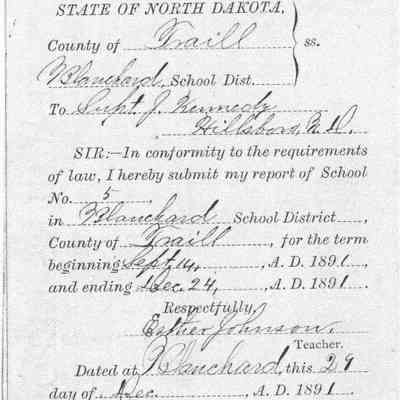 STATE OF NORTH DAKOTA,
County of Traill ss.
Blanchard School Dist.
To Supt. J. Kennedy
Hillsboro, N.D.
SIR:—In conformity to the requirements
of law, I hereby submit my report of School
No. 5,
in Blanchard School District,
County of Traill, for the term
beginning Sept 14, A. D. 1891,
and ending Dec. 24, A. D. 1891.
Respectfully,
Esther Johnson.
Teacher.
Dated at Blanchard, this 29
day of Dec., A. D. 1891.